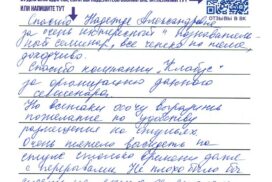 ИЛИ НАПИШИТЕ ТУТ
ОТЗЫВЫ В ВК
Спасибо Надежде Александровне
за очень интересный и познаватель-
ный семинар, все четко по теме,
доходчиво.
Спасибо компании
за организацию данного
семинара.
Но всетаки хочу выразить
пожелание по удобству
размещения на стульях.
Очень тяжело высидеть на
стуле столько времени даже
с перерывами. Не плохо было бы